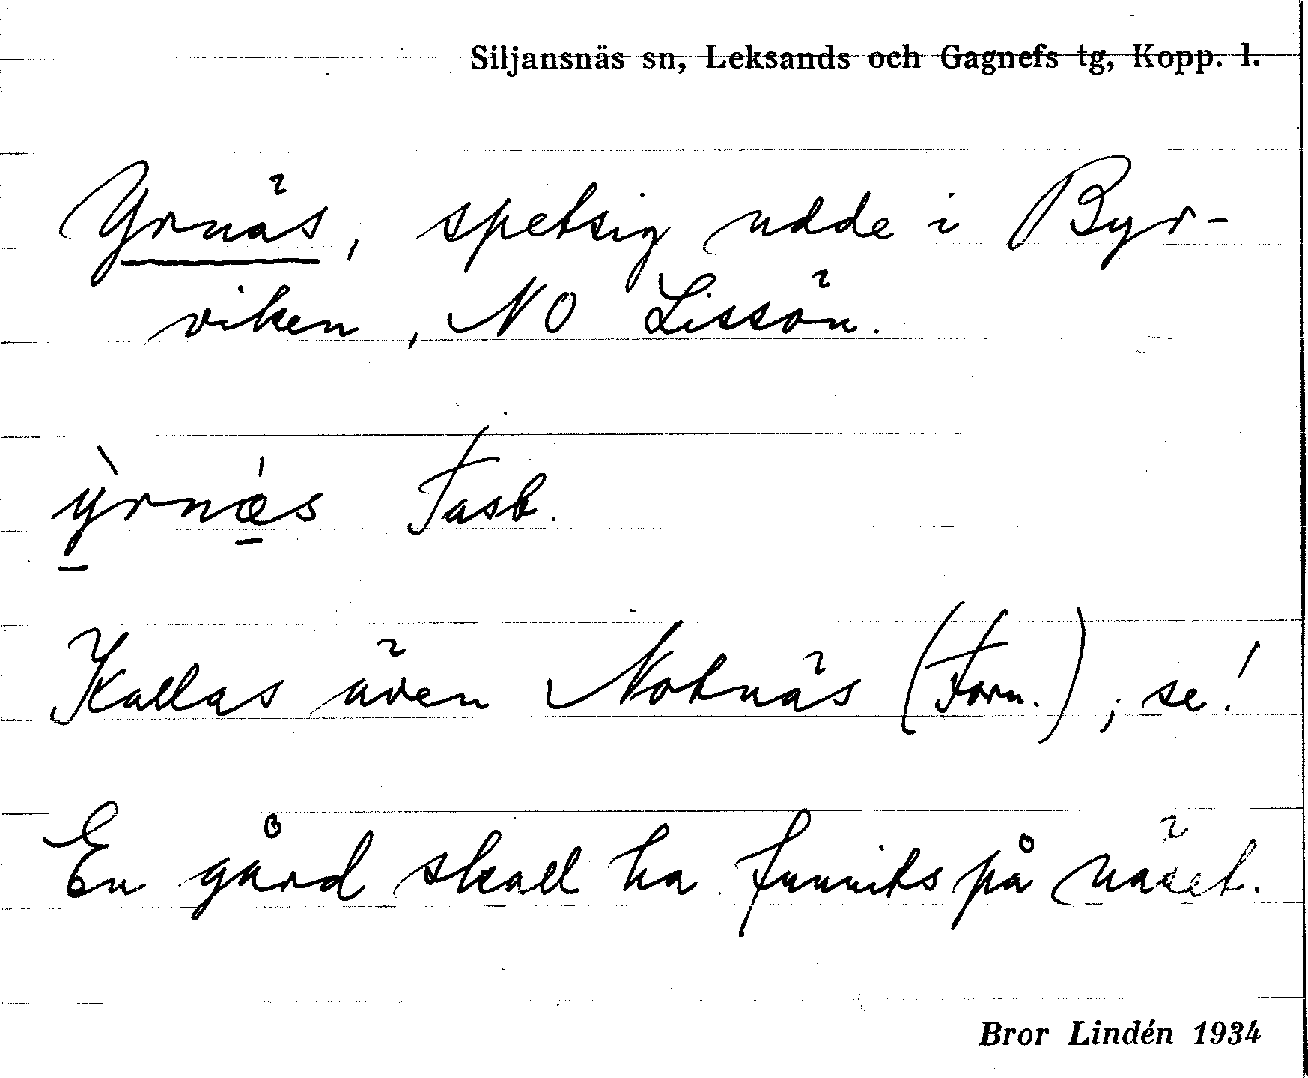 Siljansnäs sn, Leksands och Gagnefs tg, Kopp. l.
Yrnäs, spetsig udde i Byr-
viken, NO Lissön.
ỳrnǽs Fasb.
Kallas även Notnäs (Forn.), se!
En gård skall ha funnits på näset.
Bror Lindén 1934